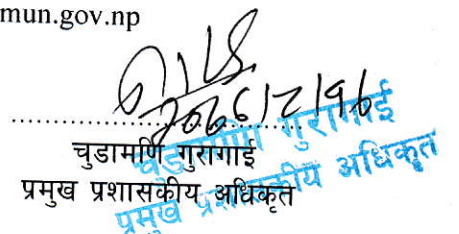 mun.gov.np
........................................
चुडामणि गुरागाई
प्रमुख प्रशासकीय अधिकृत
चुडामणि गुरागाई
प्रमुख प्रशासकीय अधिकृत